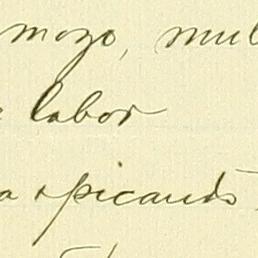 mozo, mul
labor
a spicando